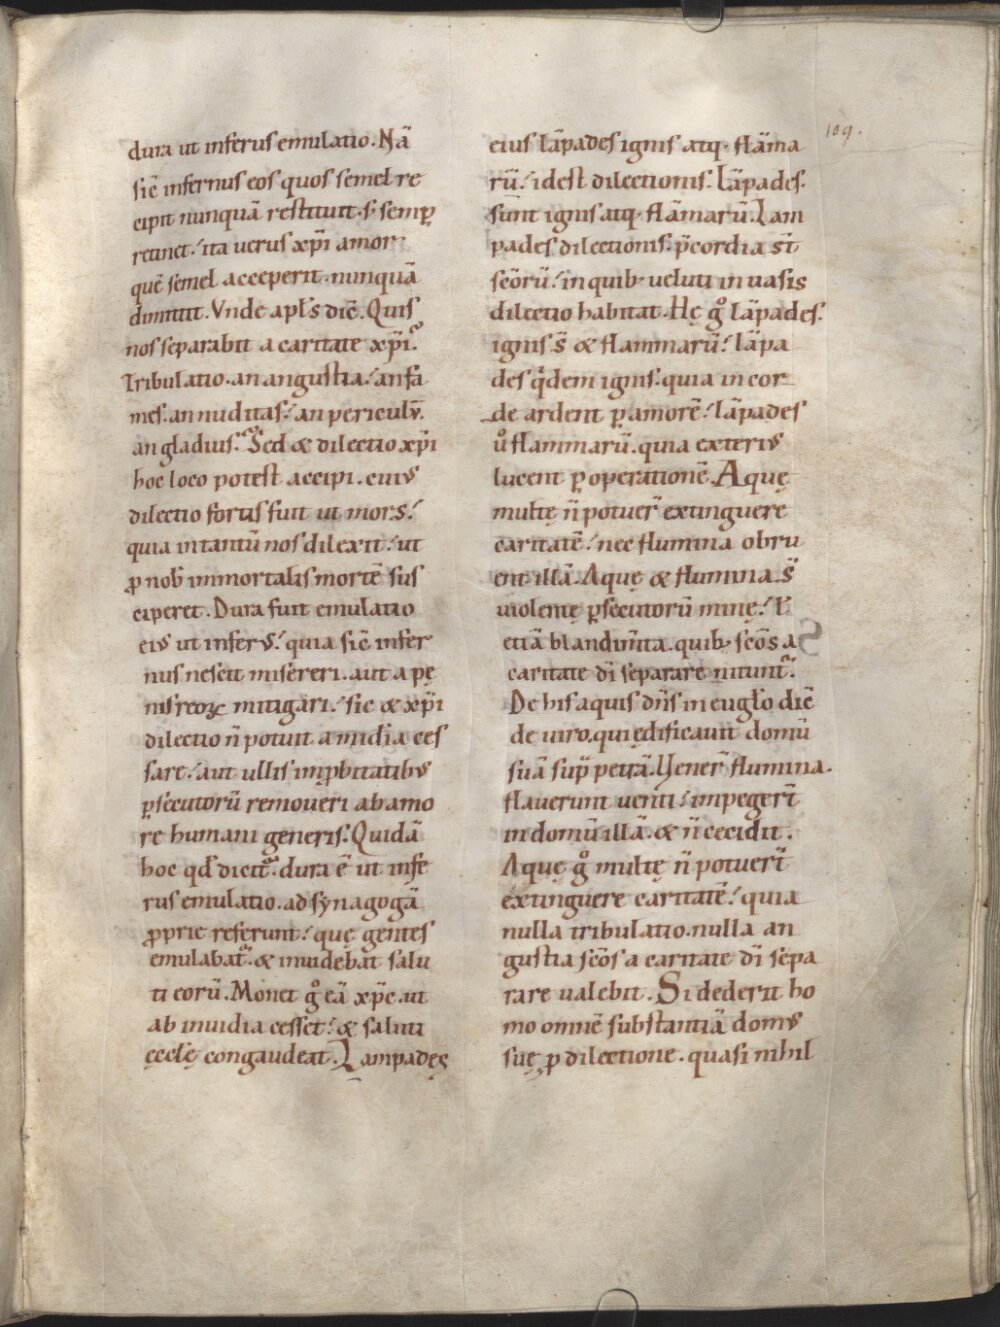 dura ut infer&us emulatio. Nā
sic̄ infernus eos quos semel re
cipit nunquā restituit. s; semꝑ
retinet: ita uerus xp̄i amor
quē semel acceperit. nunquā
dimittit. Vnde apl̄s dic̄. Quis
nos separabit a caritate xp̄i?
Tribulatio. an angustia: an fa
mes. an nuditas: an periculū.
an gladius? Sed & dilectio xp̄i
hoc loco potest accipi. cuiꝰ
dilectio fortis fuit ut mors:
quia in tantū nos dilexit: ut
ꝓ nob̄ immortalis mortē sus
ciperet. Dura fuit emulatio
eiꝰ ut inferꝰ: quia sic̄ infer
nus nescit misereri. aut a pę
nis reoꝝ mitigari: sic & xp̄i
dilectio n̄ potuit a inuidia ces
sare: aut ullis imꝓbitatibꝰ
ꝑsecutorū remoueri ab amo
re humani generis. Quidā
hoc qd̄ dicit᷑. dura ē ut infe
rus emulatio. ad synagogā
ꝓprie referunt: quę gentes
emulabat᷑. & inuidebat salu
ti eorū. Monet gͦ eā xp̄c. ut
ab inuidia cesset: & saluti
ęccl̄ę congaudeat. Lampadęs
eius lāpades ignis atq; flāma
rū: id est dilectionis. Lāpades.
sunt ignis atq; flāmarū. Lam
pades dilectionis. p̄cordia st̄
sc̄orū: in quib; ueluti in uasis
dilectio habitat. Hę gͦ lāpades.
ignis s̄ & flammarū: lāpa
des qͥdem ignis. quia in cor
de ardent ꝑ amorē: lāpades
uͦ flammarū. quia exteriꝰ
lucent ꝑ operationē. Aquę
multę n̄ potuer̄ extinguere
caritatē: nec flumina obru
ent illā. Aquę & flumina. s̄
uiolentę ꝑsecutorū minę: ł
etiā blandim̄ta. quib; sc̄os a
caritate dī separare nitunt᷑.
De his aquis dn̄s in eugl̄o dic̄
de uiro. qui ędificauit domū
suā sup̄ petrā. Vener̄ flumina.
flauerunt uenti: impeger̄t
in domū illā. & n̄ cecidit.
Aquę gͦ multę n̄ potuer̄t
extinguere caritatē: quia
nulla tribulatio. nulla an
gustia sc̄os a caritate dī sepa
rare ualebit. Si dederit ho
mo omnē substantiā domꝰ
suę, ꝓ dilectione. quasi nihil
109.